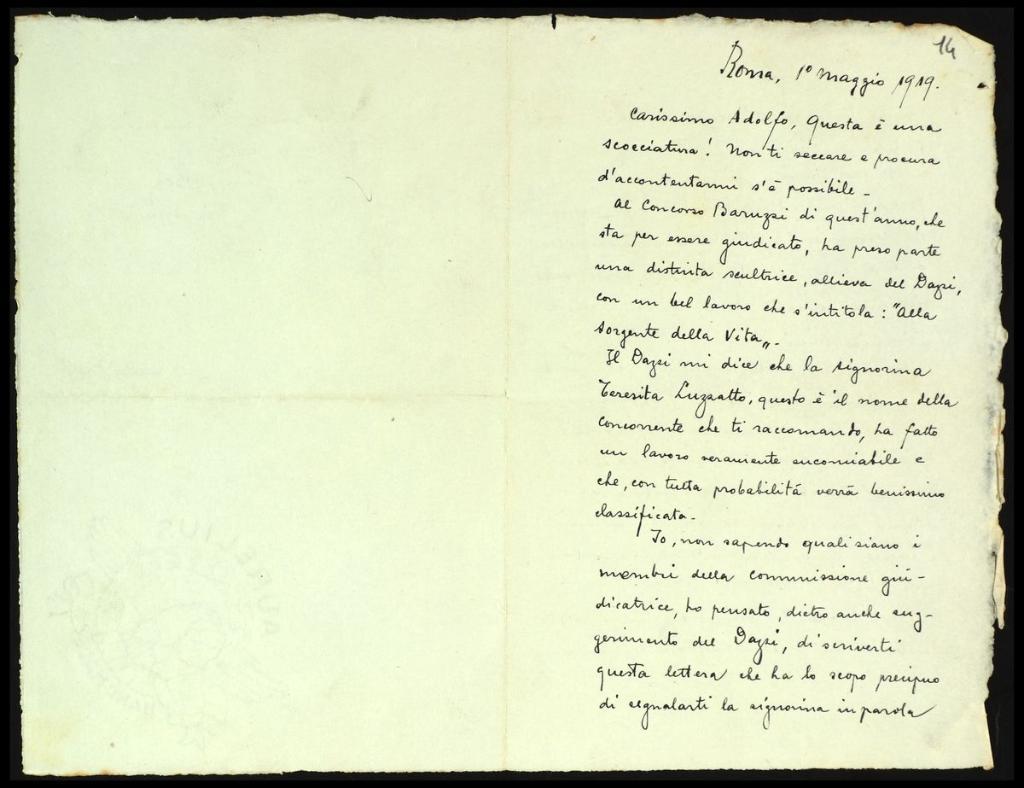 14
Roma, 1º maggio 1919.
Carissimo Adolfo, Questa è una
scocciatura! Non ti seccare e procura
d'accontentarmi s'è possibile -
Al Concorso Baruzzi di quest'anno, che
sta per essere giudicato, ha preso parte
una distinta scultrice, allieva del Dazzi,
con un bel lavoro che s'intitola: "Alla
sorgente della Vita„.
Il Dazzi mi dice che la signorina
Teresita Luzzatto, questo è il nome della
concorrente che ti raccomando, ha fatto
un lavoro veramente encomiabile e
che, con tutta probabilità verrà benissimo
classificata -
Io, non sapendo quali siano i
membri della commissione giu-
dicatrice, ho pensato, dietro anche sug-
gerimento del Dazzi, di scriverti
questa lettera che ha lo scopo precipuo
di segnalarti la signorina in parola
AURELIUS